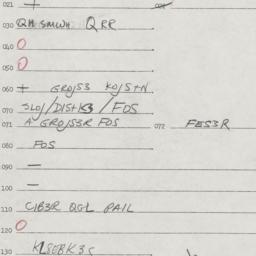 021 +
030 QM SMWH QRR
040 0
050 0
060 + GROJS3 KOJS+N
070 SLOJ/DISTK3/FOS
071 A GROJS3R FOS 072 FES3R
080 FOS
090 —
100 —
110 CIB3R QGL PAIL
120 0
130 KLSEBK3S